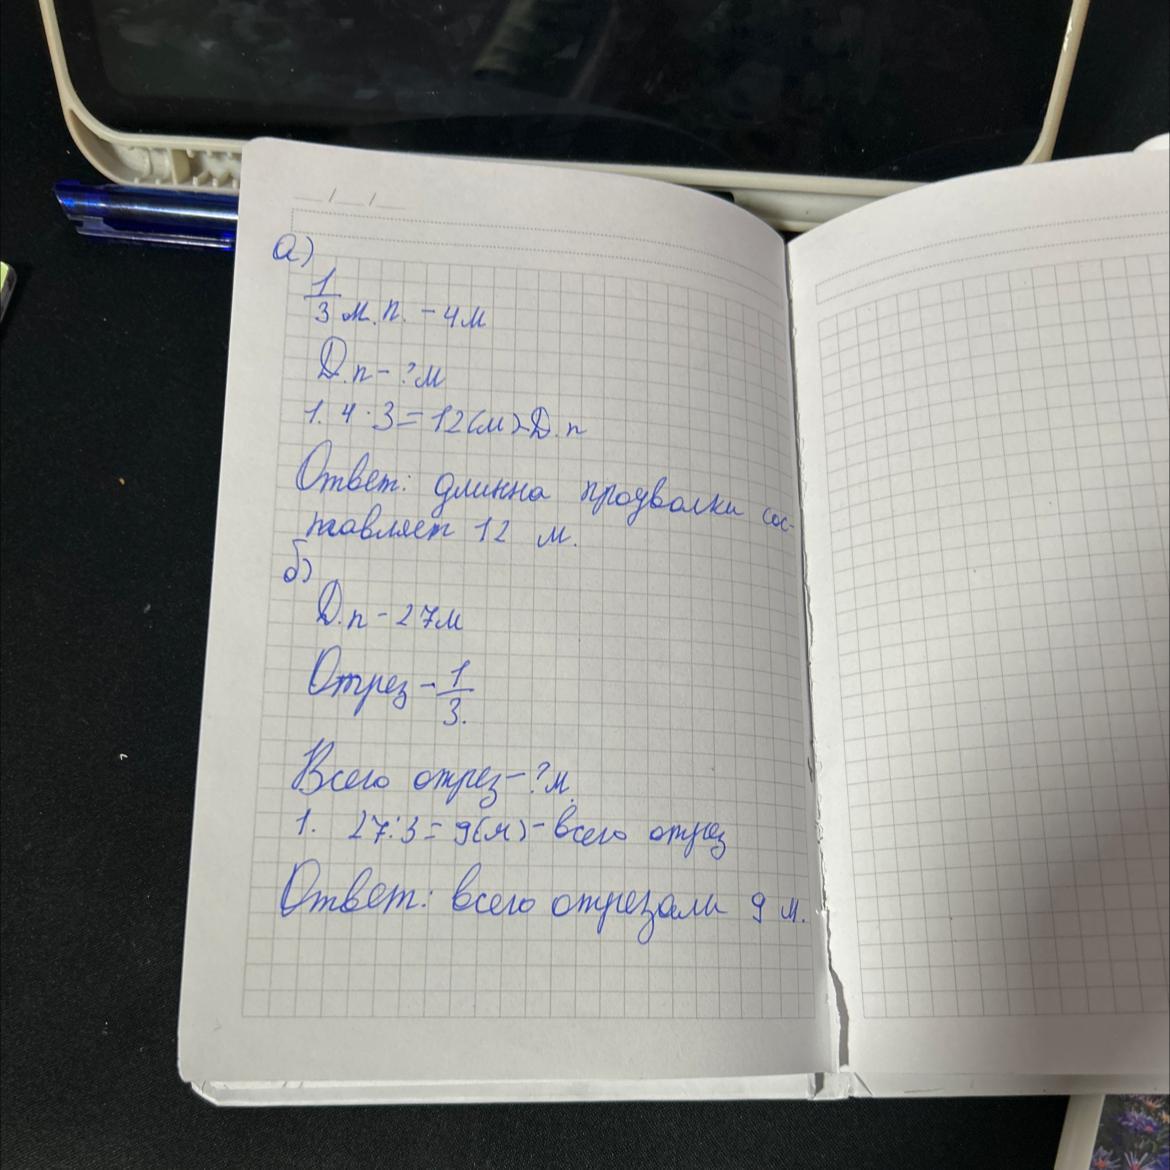 __/__/__
а)
1/3 м.п. - 4м
Д.п - ?м
1. 4 · 3 = 12(м)-Д.п
Ответ: длинна продволки сос-
тавляет 12 м.
б)
Д.п - 27м
Отрез - 1/3.
Всего отрез - ?м.
1. 27:3 = 9(м) - всего отрез
Ответ: всего отрезали 9 м.